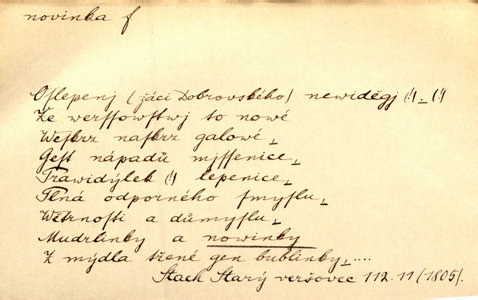 novinka f
Oslepenj (žáci Dobrovského) newiděgj (!) – (!)
Že werssowstwj to nowé
Wesskrz nasskrz galové,
Gest nápadů mjssenice,
Trawidýlek (!) lepenice,
Plná odporného smyslu,
Wětrnosti a důmyslu,
Mudrlinky a nowinky
Z mýdla třené gen bublinky, ....
Stach Starý veršovec 112. 11 (1805).